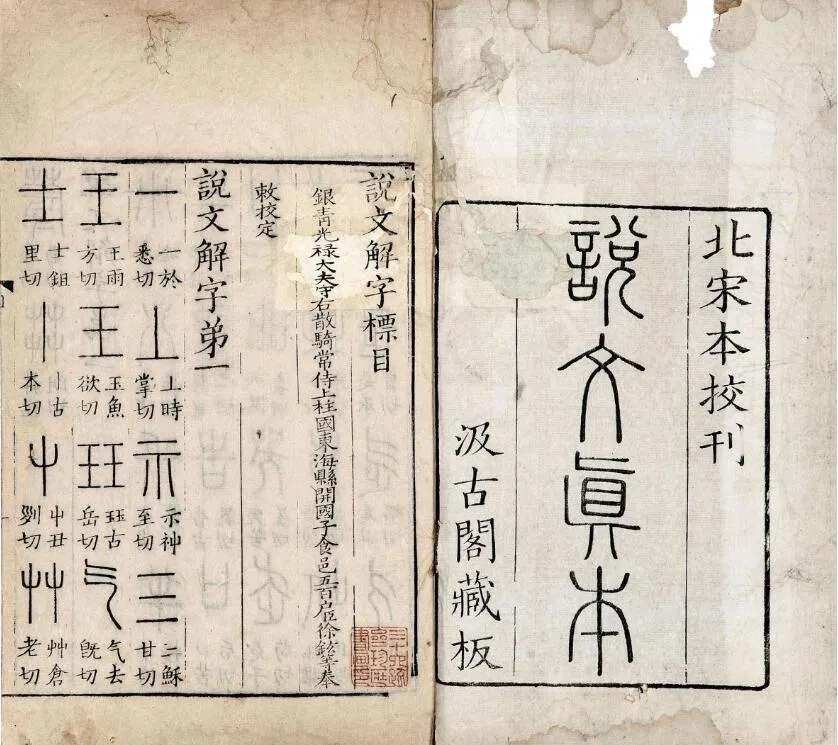 北宋本挍刊
說文眞本
汲古閣藏板
說文解字標目
銀青光禄大夫守右散騎常侍上柱國東海縣開國子食邑五百户臣徐鉉等奉
敕挍定
說文解字弟一
一 一於悉切 丄 上時掌切 示 示神至切 三 三穌甘切
王 王雨方切 王 玉魚欲切 玨 珏古岳切 气 气去旣切
士 士鉏里切 丨 丨古本切 屮 屮丑切 艸 艸倉老切